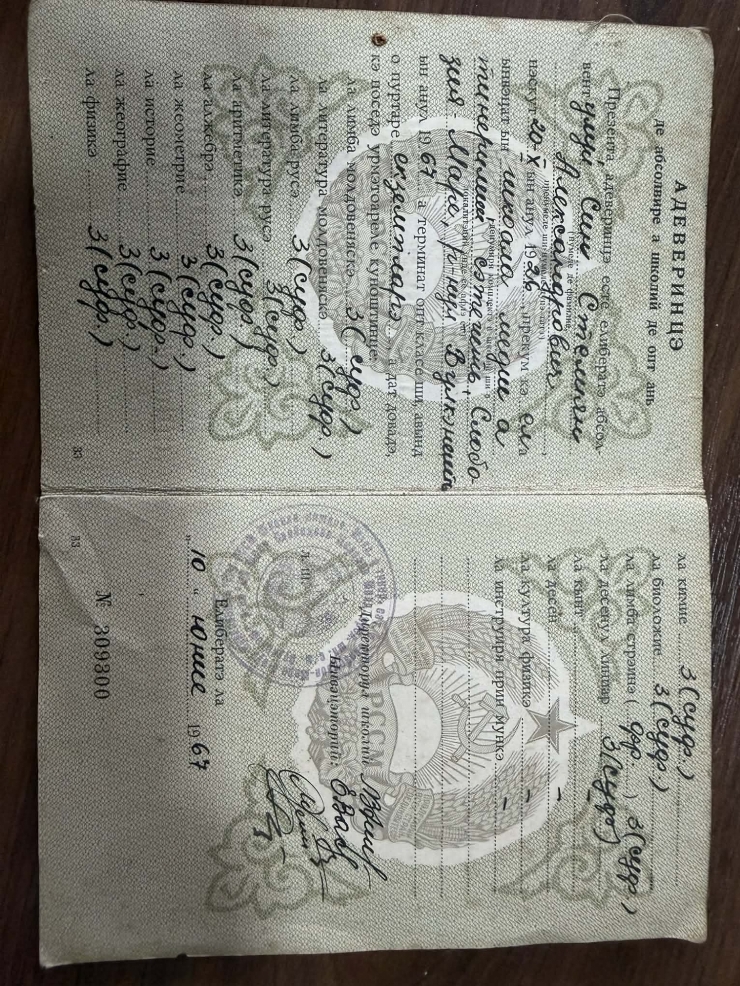 АДЕВЕРИНЦЭ
де абсолвире а школий де опт ань
Презента адеверинцэ есте елибератэ абсол-
вентулуй Син Степан
Александрович
нэскут 20-X ын анул 1926, прекум кэ ел а
ынвэцат ын школа медие а
тинеримий сэтешть, Слобо
зия-Маре, р-нул Вулкэнешть
ын анул 1967 а терминат опт класе ши авынд
о пуртаре екземпларэ, а дат довадэ,
кэ поседэ урмэтоареле куноштинце:
ла лимба молдовеняскэ 3 (суф.)
ла литература молдовеняскэ 3 (суф.)
ла лимба русэ 3 (суф.)
ла литература русэ 3 (суф.)
ла аритметикэ 3 (суф.)
ла алжебрэ 3 (суф.)
ла жеометрие 3 (суф.)
ла историе 3 (суф.)
ла жеографие 3 (суф.)
ла физикэ 3 (суф.)
83
ла химие 3 (суф.)
ла биоложие 3 (суф.)
ла лимба стрэинэ ( фр. ) 3 (суф.)
ла десенул линиар 3 (суф.)
ла кынт -
ла десен -
ла културa физикэ -
ла инструиря прин мункэ -
РССМ
Директорул школий
Ынвэцэторий:
Елибератэ ла
„ 10 “ юние 1967
№ 309300
83